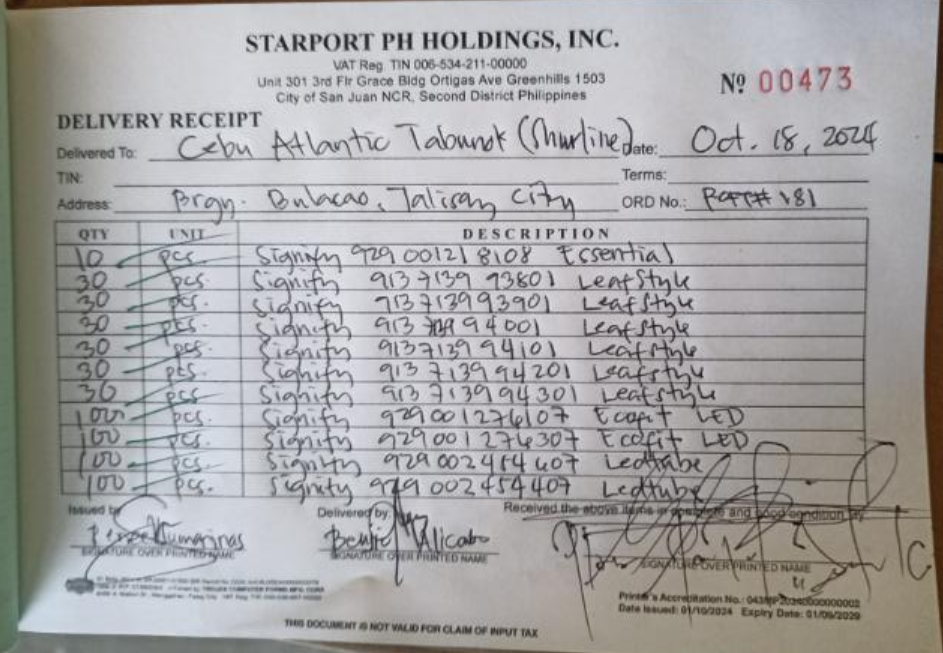 STARPORT PH HOLDINGS, INC.
VAT Reg. TIN 006-534-211-00000
Unit 301 3rd Flr Grace Bldg Ortigas Ave Greenhills 1503
City of San Juan NCR, Second District Philippines
Nº 00473
DELIVERY RECEIPT
Delivered To: Cebu Atlantic Tabunok (Shurline) Date: Oct. 18, 2024
TIN: Terms:
Address: Brgy. Bulacao, Talisay City ORD No.: 181
QTY UNIT DESCRIPTION
10 pcs. Signify 929 00121 8108 Essential
30 pcs. Signify 913 7139 93801 LeafStyle
30 pcs. Signify 913 7139 93901 LeafStyle
30 pcs. Signify 913 94001 LeafStyle
30 pcs. Signify 913 7139 94101 LeafStyle
30 pcs. Signify 913 7139 94201 Leafstyle
30 pcs. Signify 913 7139 94301 Leafstyle
100 pcs. Signify 929 001276107 Ecofit LED
100 pcs. Signify 929 001 276307 Ecofit LED
100 pcs. Signify 929 002454607 Ledtube
100 pcs. Signify 929 002454407 Ledtube
Issued by Delivered by: Received the above items in complete and good condition by
Benjie Alicabo
SIGNATURE OVER PRINTED NAME SIGNATURE OVER PRINTED NAME SIGNATURE OVER PRINTED NAME
Printer's Accreditation No.:
Date Issued: 01/10/2024 Expiry Date: 01/09/2029
THIS DOCUMENT IS NOT VALID FOR CLAIM OF INPUT TAX